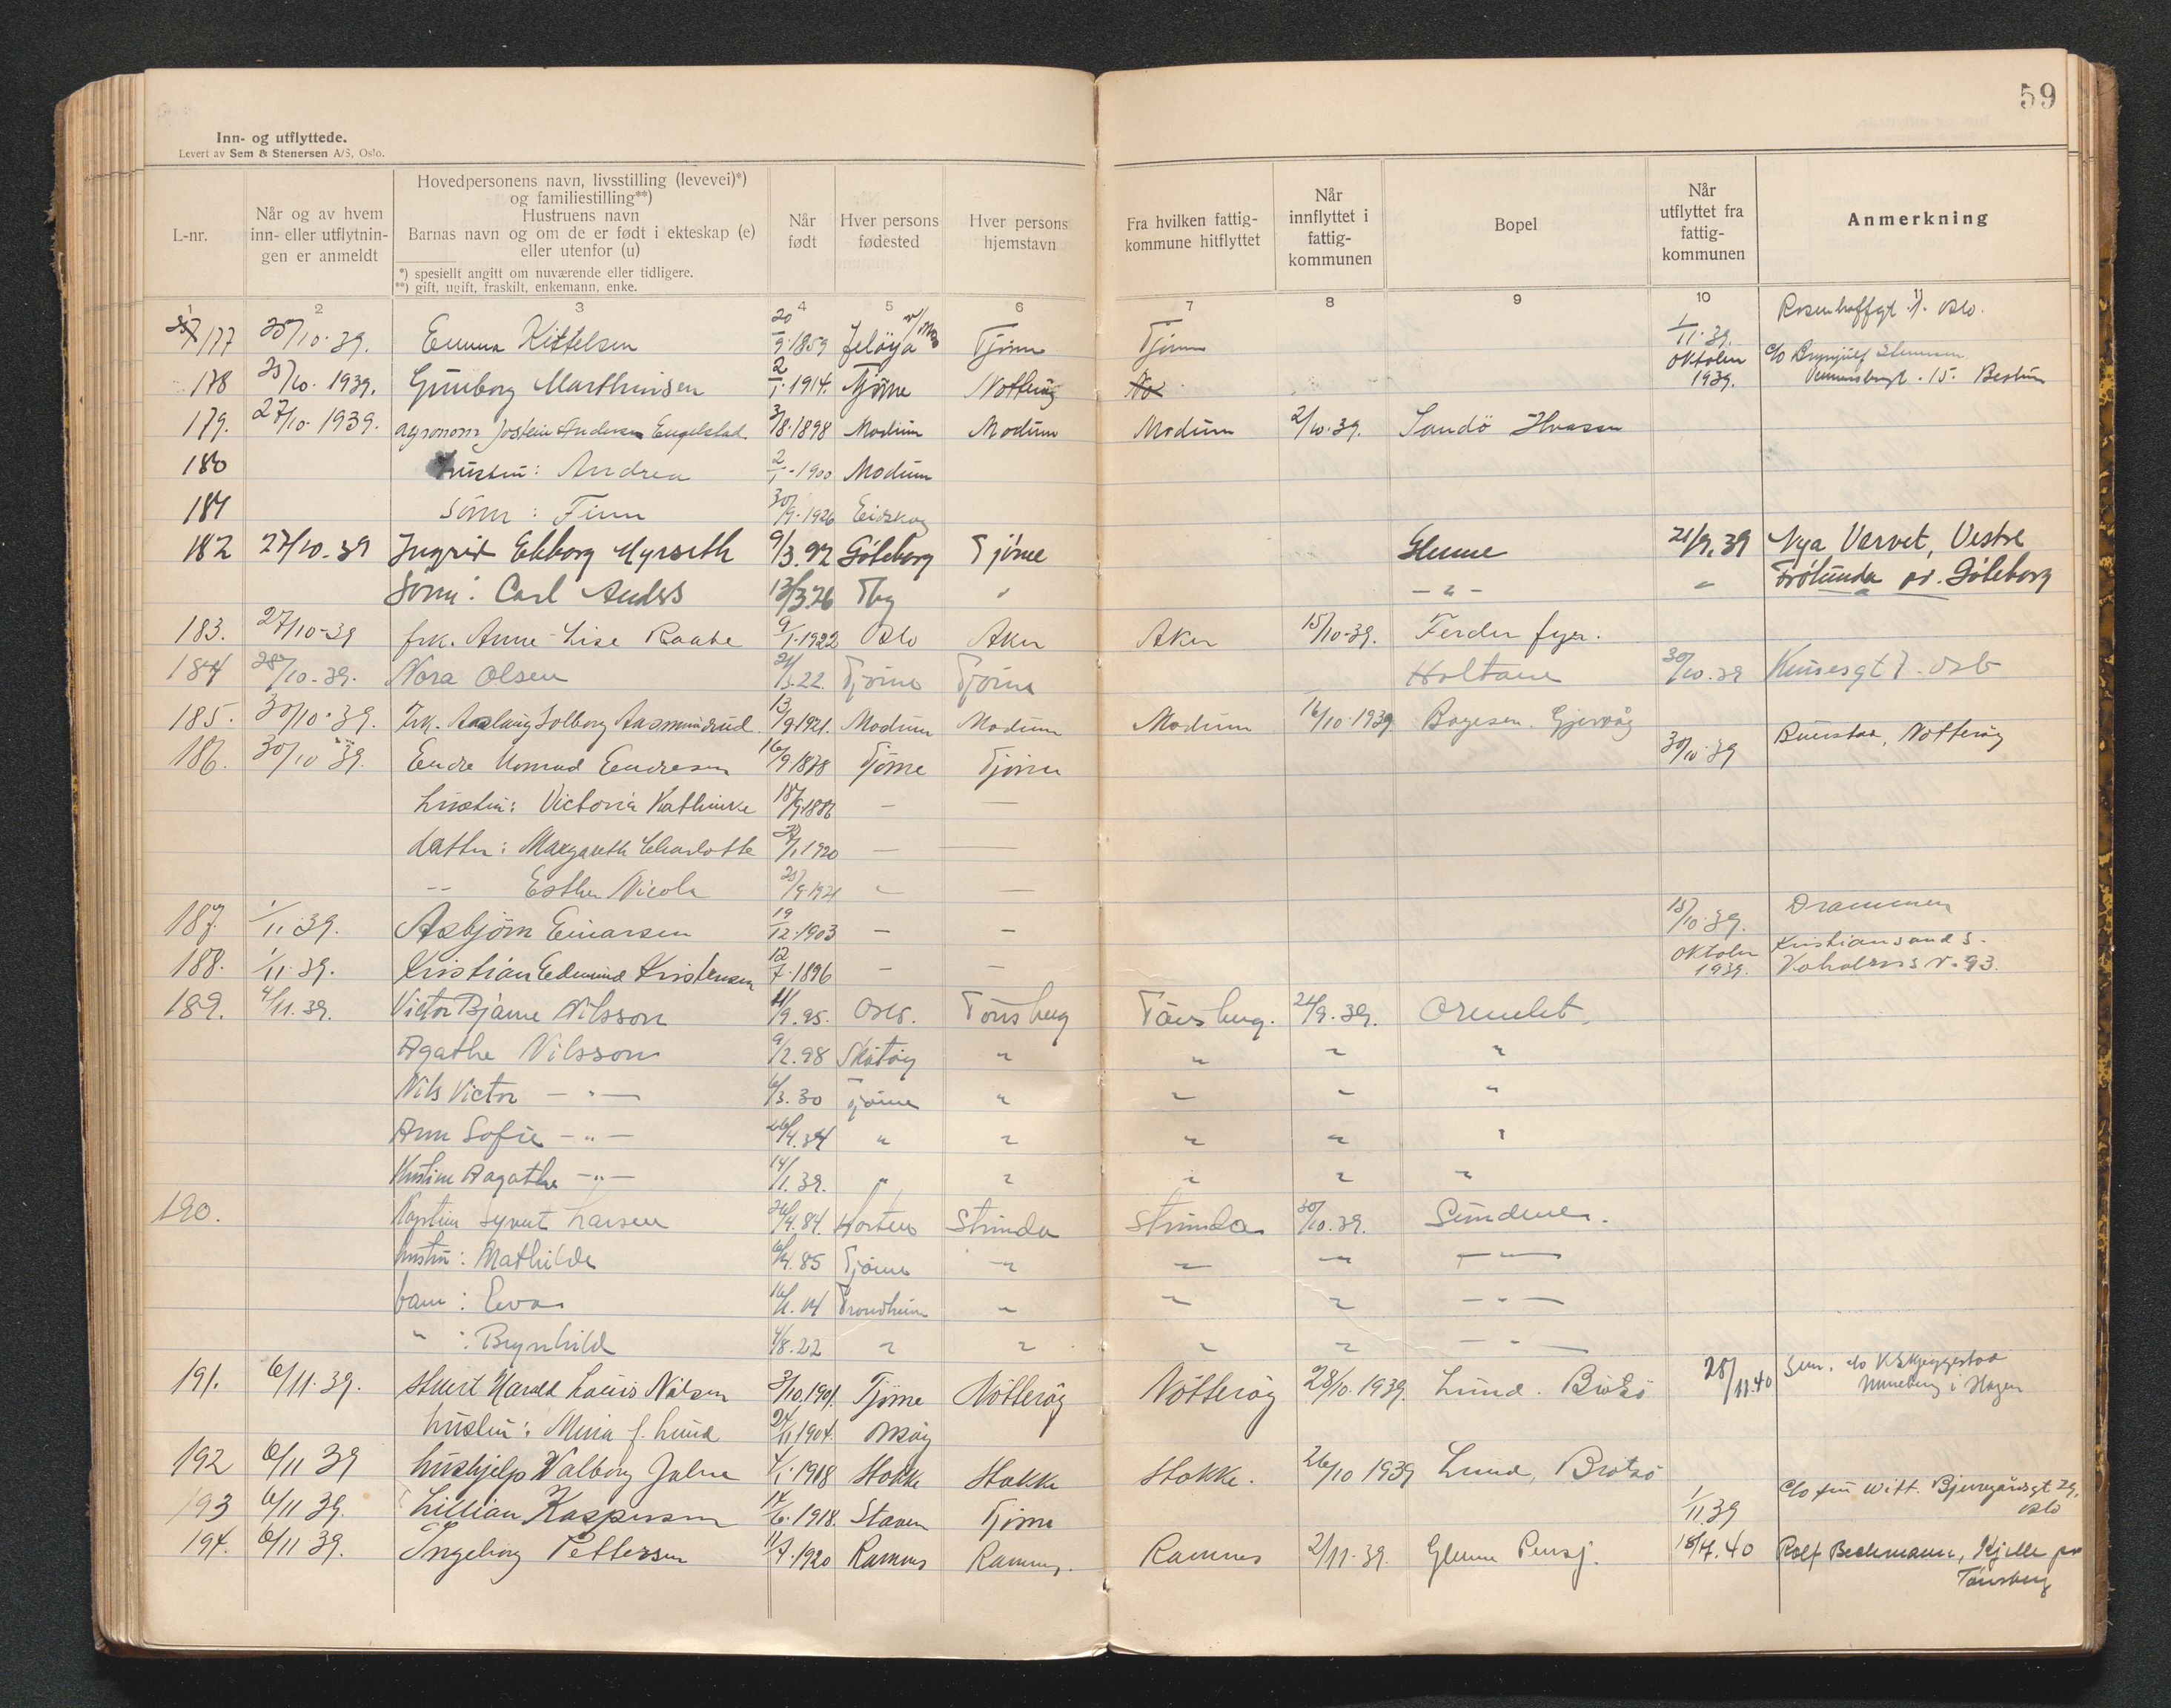 59
Inn- og utflyttede.
Levert av Sem & Stenersen A/S, Oslo.
L-nr.
Når og av hvem
inn- eller utflytnin-
gen er anmeldt
Hovedpersonens navn, livsstilling (levevei)*)
og familiestilling**)
Hustruens navn
Barnas navn og om de er født i ekteskap (e)
eller utenfor (u)
*) spesiellt angitt om nuværende eller tidligere.
**) gift, ugift, fraskilt, enkemann, enke.
Når
født
Hver persons
fødested
Hver persons
hjemstavn
Fra hvilken fattig-
kommune hitflyttet
Når
innflyttet i
fattig-
kommunen
Bopel
Når
utflyttet fra
fattig-
kommunen
Anmerkning
1 2 3 4 5 6 7 8 9 10 11
177 25/10.39. Emma Kittelsen 20/9.1859 Jeløya Tjøme Tjøme 1/11.39. Oslo.
178 25/10.1939. Gunborg Marthinsen 2/1.1914. Tjøme Nøtterøy Oktober 1939. c/o Brynjulf 15. Bestum
179. 27/10.1939. agronom Jostein Andersen Engelstad 3/8.1898 Modum Modum Modum 2/10.39. Sandö Hvasser
180 hustru: Andrea 2/1-1900 Modum
181 Sönn: Finn 30/9.1926 Eidskog
182 27/10.39 Ingrid Ekborg Myrseth 9/3.92 Göteborg Tjöme Glenne 21/9.39 Nya Varvet, Vestre
Sönn: Carl Anders 13/3.26 Tbg " - " - " Frölunda pr. Göteborg
183. 27/10-39 frk. Anne-Lise Raabe 9/1.1922 Oslo Aker Aker 15/10-39. Ferder fyr.
184 28/10.39. Nora Olsen 24/3.22. Tjöme Tjöme Holtane 30/10.39 Oslo
185. 30/10.39. Frk. Aaslaug Solborg Aasmundrud 13/9.1921. Modum Modum Modum 16/10.1939 Bøgesen. Gjervåg
186. 30/10 39. Endre Konrad Endresen 16/9 1878 Tjöme Tjöme 30/10.39 Buerstad, Nøtterøy
hustru: Victoria Kathinka 18/9.1886 — —
datter: Margareth Charlotte /1 1920 — —
-- Esther Nicola 25/9.1921 — —
187. 1/11.39. Asbjörn Einarsen 19/12.1903 — — 15/10.39. Drammen
188. 1/11.39. Kristian Edmund Kristensen 12/7.1896 — — Oktober 1939. Kristiansand S. 93.
189. 4/11.39. Victor Bjarne Nilsson 11/9.95. Oslo. Tönsberg Tönsberg. 21/9.39. Ormelet.
Agathe Nilsson 9/2.98 Skåtøy " " " "
Nils Victor — " — 6/3.30 Tjöme " " " "
Ann Sofie — " — 26/4.34 " " " " "
Kristine Aagathe — " — 14/1.39. " " " " "
190. Kaptein Syvert Larsen 26/4.84. Horten Strinda Strinda 30/10.39. Sundene.
hustru: Mathilde 6/4.85 Tjöme " " " — " —
barn: Eva 16/1.14 Trondheim " " " — " —
" : Brynhild 4/8.22 " " " " — " —
191. 6/11.39. stuert Harald Louis Nilsen 3/10.1901. Tjöme Nötteröy Nötteröy 28/10.1939. Lund. Brötsö 28/11.40 Sem. c/o K. Skjeggestad
hustru: Mina f. Lund 24/11 1904. Onsøy
192 6/11 39 hushjelp Valborg Johre 4/1.1918 Stokke Stokke Stokke. 26/10 1939 Lund, Brötsö
193 6/11 39. Lillian Kaspersen 14/6.1918. Stavern Tjöme 1/11 39 c/o fru Witt. Bjerregårdsgt 29. Oslo
194. 6/11 39. Ingeborg Pettersen 11/7.1920 Ramnes Ramnes. Ramnes 2/11.39. Glenne Pensj. 18/4.40 Rolf Beckmann, Kjelle pr
Tönsberg